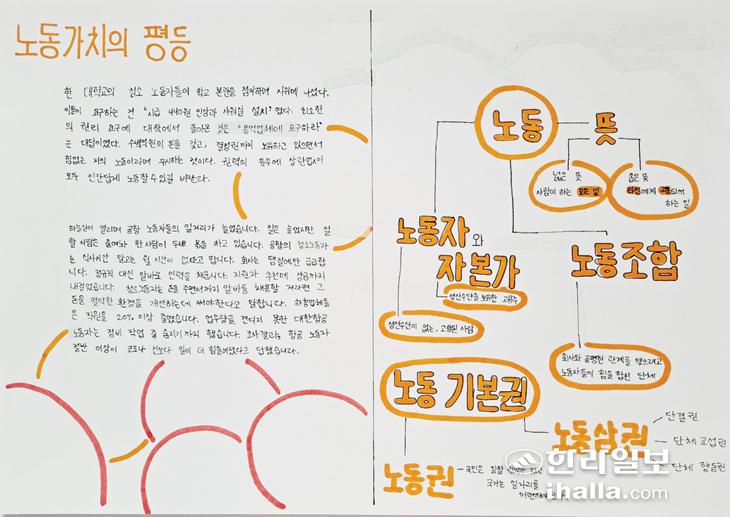 노동가치의 평등
한 대학교의 청소 노동자들이 학교 본관을 점거하며 시위에 나섰다.
이들이 요구하는 건 "시급 440원 인상과 샤워실 설치"였다. 최소한
의 권리 요구에 대학에서 돌아온 것은 "용역업체에 요구하라"
는 대답이었다. 수백억원의 돈을 갖고, 결정권까지 보유하고 있으면서
힘없는 자의 노동이라며 무시하는 것이다. 권력의 유무에 상관없이
모두 인간답게 노동할 수 있길 바란다.
하늘길이 열리며 공항 노동자들의 일거리가 늘었습니다. 일은 늘었지만 일
할 사람은 줄여놔 한 사람이 두세 몫을 하고 있습니다. 공항의 청소노동자
는 식사시간 말고는 쉴 시간이 없다고 합니다. 회사는 땜질에만 급급합
니다. 정규직 대신 알바로 인력을 채웁니다. 지원자 추천에 상금까지
내걸었습니다. 청소노동자는 돈을 주면서까지 알바를 채용할 거라면 그
돈을 열악한 환경을 개선하는데 써야한다고 말합니다. 하청업체들
은 직원을 20% 이상 줄였습니다. 업무량을 견디지 못한 대한항공
노동자는 정비 작업 중 숨지기까지 했습니다. 조사결과, 항공 노동자
절반 이상이 코로나 전보다 일이 더 힘들어졌다고 답했습니다.
노동 뜻
넓은 뜻
사람이 하는 모든 일
좁은 뜻
타인에게 고용되어
하는 일
노동자와
자본가
생산수단을 보유한 고용주
생산수단이 없는, 고용된 사람
노동조합
회사와 공평한 관계를 맺으려고
노동자들이 힘을 합친 단체
노동 기본권
노동삼권
단결권
단체 교섭권
단체 행동권
노동권
국민은 일할 권리가 있고
국가는 일자리를
마련해야
한라일보
ihalla.com